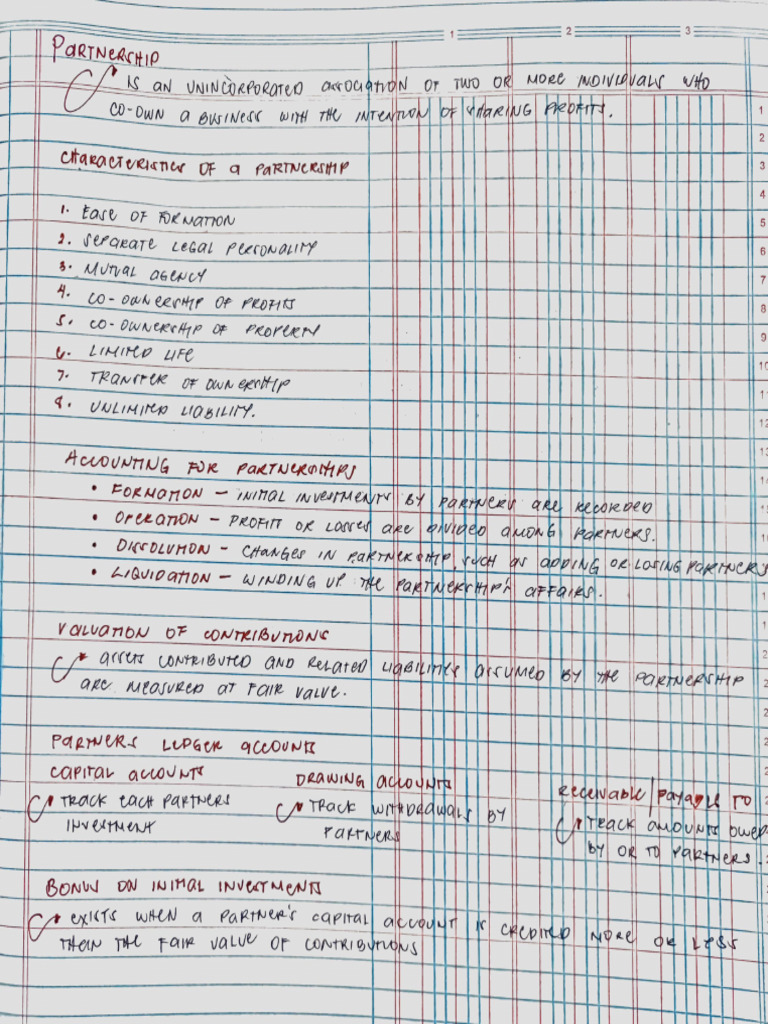 1 2 3
PARTNERSHIP
IS AN UNINCORPORATED ASSOCIATION OF TWO OR MORE INDIVIDUALS WHO
CO-OWN A BUSINESS WITH THE INTENTION OF SHARING PROFITS.
CHARACTERISTICS OF A PARTNERSHIP
1. EASE OF FORMATION
2. SEPARATE LEGAL PERSONALITY
3. MUTUAL AGENCY
4. CO-OWNERSHIP OF PROFITS
5. CO-OWNERSHIP OF PROPERTY
6. LIMITED LIFE
7. TRANSFER OF OWNERSHIP
8. UNLIMITED LIABILITY.
ACCOUNTING FOR PARTNERSHIPS
• FORMATION – INITIAL INVESTMENTS BY PARTNERS ARE RECORDED
• OPERATION – PROFIT OR LOSSES ARE DIVIDED AMONG PARTNERS.
• DISSOLUTION – CHANGES IN PARTNERSHIP, SUCH AS ADDING OR LOSING PARTNERS
• LIQUIDATION – WINDING UP THE PARTNERSHIP'S AFFAIRS.
VALUATION OF CONTRIBUTIONS
ASSETS CONTRIBUTED AND RELATED LIABILITIES ASSUMED BY THE PARTNERSHIP
ARE MEASURED AT FAIR VALUE.
PARTNERS LEDGER ACCOUNTS
CAPITAL ACCOUNTS
TRACK EACH PARTNERS
INVESTMENT
DRAWING ACCOUNTS
TRACK WITHDRAWALS BY
PARTNERS
RECEIVABLE/PAYABLE TO
TRACK AMOUNTS OWED
BY OR TO PARTNERS.
BONUS ON INITIAL INVESTMENTS
EXISTS WHEN A PARTNER'S CAPITAL ACCOUNT IS CREDITED MORE OR LESS
THAN THE FAIR VALUE OF CONTRIBUTIONS
1
2
3
4
5
6
7
8
9
10